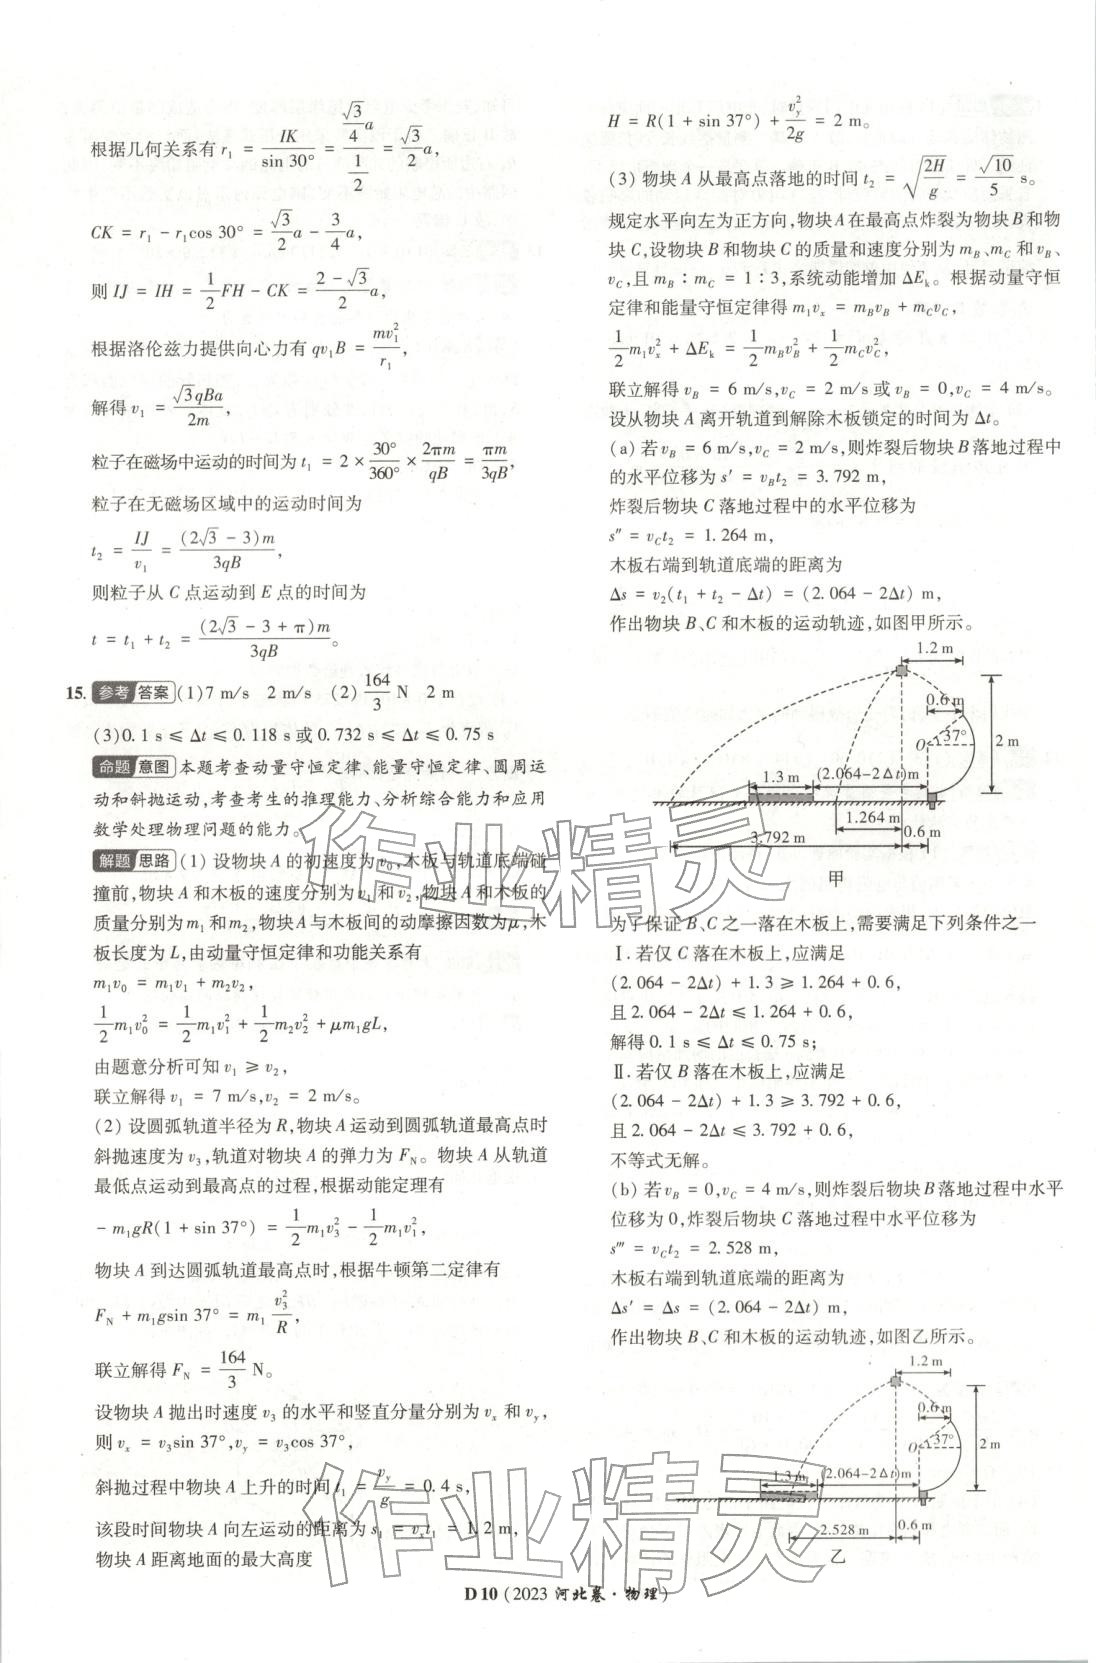 根据几何关系有 r₁ = IK/sin 30° = (√3/4 a)/(1/2) = √3/2 a,
CK = r₁ − r₁cos 30° = √3/2 a − 3/4 a,
则 IJ = IH = 1/2 FH − CK = (2−√3)/2 a,
根据洛伦兹力提供向心力有 qv₁B = mv₁²/r₁,
解得 v₁ = √3qBa/2m,
粒子在磁场中运动的时间为 t₁ = 2 × 30°/360° × 2πm/qB = πm/3qB,
粒子在无磁场区域中的运动时间为
t₂ = IJ/v₁ = (2√3 − 3)m/3qB,
则粒子从 C 点运动到 E 点的时间为
t = t₁ + t₂ = (2√3 − 3 + π)m/3qB。
15. 参考 答案 (1)7 m/s 2 m/s (2) 164/3 N 2 m
(3)0.1 s ≤ Δt ≤ 0.118 s 或 0.732 s ≤ Δt ≤ 0.75 s
命题 意图 本题考查动量守恒定律、能量守恒定律、圆周运
动和斜抛运动,考查考生的推理能力、分析综合能力和应用
数学处理物理问题的能力。
解题 思路 (1) 设物块 A 的初速度为 v₀,木板与轨道底端碰
撞前,物块 A 和木板的速度分别为 v₁ 和 v₂,物块 A 和木板的
质量分别为 m₁ 和 m₂,物块 A 与木板间的动摩擦因数为 μ,木
板长度为 L,由动量守恒定律和功能关系有
m₁v₀ = m₁v₁ + m₂v₂,
1/2 m₁v₀² = 1/2 m₁v₁² + 1/2 m₂v₂² + μm₁gL,
由题意分析可知 v₁ ≥ v₂,
联立解得 v₁ = 7 m/s,v₂ = 2 m/s。
(2) 设圆弧轨道半径为 R,物块 A 运动到圆弧轨道最高点时
斜抛速度为 v₃,轨道对物块 A 的弹力为 F_N。物块 A 从轨道
最低点运动到最高点的过程,根据动能定理有
− m₁gR(1 + sin 37°) = 1/2 m₁v₃² − 1/2 m₁v₁²,
物块 A 到达圆弧轨道最高点时,根据牛顿第二定律有
F_N + m₁gsin 37° = m₁ v₃²/R,
联立解得 F_N = 164/3 N。
设物块 A 抛出时速度 v₃ 的水平和竖直分量分别为 vₓ 和 v_y,
则 vₓ = v₃sin 37°,v_y = v₃cos 37°,
斜抛过程中物块 A 上升的时间 t₁ = v_y/g = 0.4 s,
该段时间物块 A 向左运动的距离为 s₁ = vₓt₁ = 1.2 m,
物块 A 距离地面的最大高度
H = R(1 + sin 37°) + v_y²/2g = 2 m。
(3) 物块 A 从最高点落地的时间 t₂ = √(2H/g) = √10/5 s。
规定水平向左为正方向,物块 A 在最高点炸裂为物块 B 和物
块 C,设物块 B 和物块 C 的质量和速度分别为 m_B、m_C 和 v_B、
v_C,且 m_B∶m_C = 1∶3,系统动能增加 ΔE_k。根据动量守恒
定律和能量守恒定律得 m₁vₓ = m_Bv_B + m_Cv_C,
1/2 m₁vₓ² + ΔE_k = 1/2 m_Bv_B² + 1/2 m_Cv_C²,
联立解得 v_B = 6 m/s,v_C = 2 m/s 或 v_B = 0,v_C = 4 m/s。
设从物块 A 离开轨道到解除木板锁定的时间为 Δt。
(a) 若 v_B = 6 m/s,v_C = 2 m/s,则炸裂后物块 B 落地过程中
的水平位移为 s′ = v_Bt₂ = 3.792 m,
炸裂后物块 C 落地过程中的水平位移为
s″ = v_Ct₂ = 1.264 m,
木板右端到轨道底端的距离为
Δs = v₂(t₁ + t₂ − Δt) = (2.064 − 2Δt) m,
作出物块 B、C 和木板的运动轨迹,如图甲所示。
1.2 m
0.6 m
O
37°
2 m
1.3 m
(2.064−2Δt)m
1.264 m
3.792 m
0.6 m
甲
为了保证 B、C 之一落在木板上,需要满足下列条件之一
Ⅰ. 若仅 C 落在木板上,应满足
(2.064 − 2Δt) + 1.3 ≥ 1.264 + 0.6,
且 2.064 − 2Δt ≤ 1.264 + 0.6,
解得 0.1 s ≤ Δt ≤ 0.75 s;
Ⅱ. 若仅 B 落在木板上,应满足
(2.064 − 2Δt) + 1.3 ≥ 3.792 + 0.6,
且 2.064 − 2Δt ≤ 3.792 + 0.6,
不等式无解。
(b) 若 v_B = 0,v_C = 4 m/s,则炸裂后物块 B 落地过程中水平
位移为 0,炸裂后物块 C 落地过程中水平位移为
s‴ = v_Ct₂ = 2.528 m,
木板右端到轨道底端的距离为
Δs′ = Δs = (2.064 − 2Δt) m,
作出物块 B、C 和木板的运动轨迹,如图乙所示。
1.2 m
0.6 m
O
37°
2 m
1.3 m
(2.064−2Δt)m
2.528 m
0.6 m
乙
D 10 (2023 河北卷·物理)
作业精灵
作业精灵